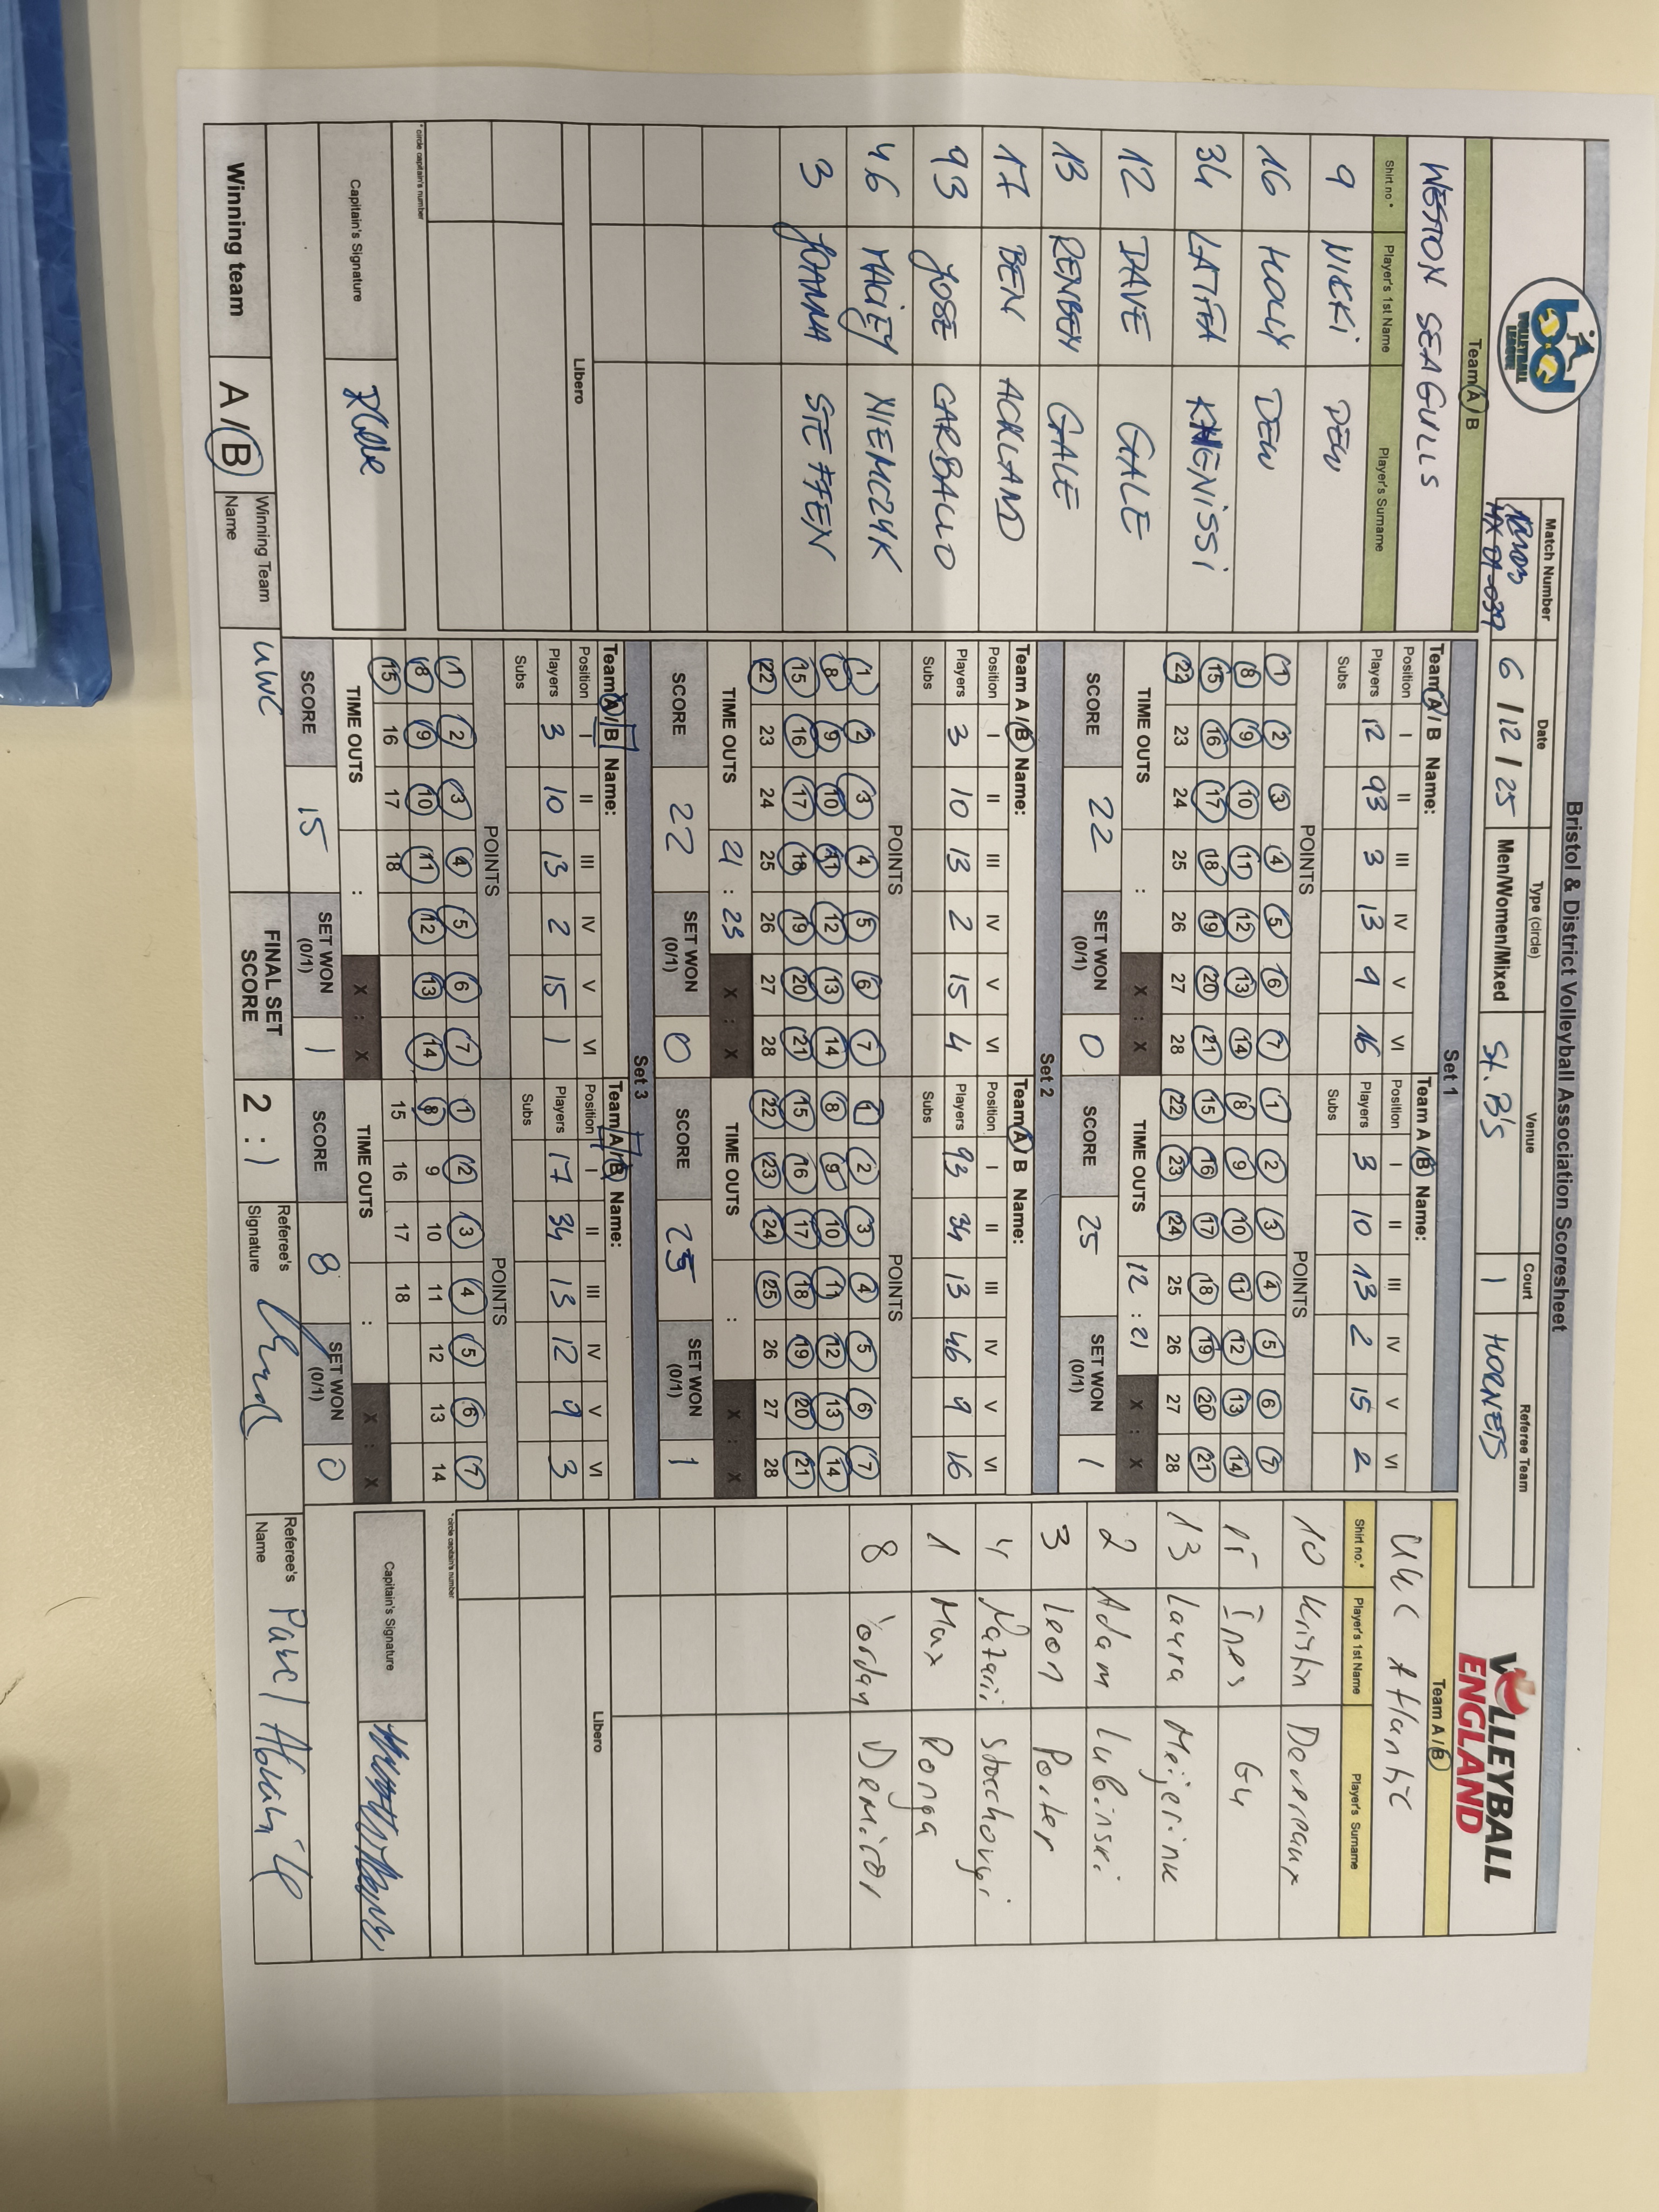 Bristol & District Volleyball Association Scoresheet
bd
VOLLEYBALL
LEAGUE
Match Number Date Type (circle) Venue Court Referee Team
MX 01-039 6 / 12 / 25 Men/Women/Mixed St. B's 1 HORNETS
VOLLEYBALL
ENGLAND
Team A / B
WESTON SEAGULLS
Shirt no.* Player's 1st Name Player's Surname
9 NIKKI DEW
16 HOLLY DEW
34 LATIFA KHENISSI
12 DAVE GALE
13 REN GALE
17 BEN ACKLAND
93 JOSE CARBALLO
46 MACIEJ NIEMCZYK
3 JOANNA STEFFEN
Libero
* circle captain's number
Capitain's Signature
Set 1
Team A / B Name:
Position I II III IV V VI
Players 12 93 3 13 9 16
Subs
POINTS
1 2 3 4 5 6 7
8 9 10 11 12 13 14
15 16 17 18 19 20 21
22 23 24 25 26 27 28
TIME OUTS : X : X
SCORE 22 SET WON (0/1) 0
Team A / B Name:
Position I II III IV V VI
Players 3 10 13 2 15 2
Subs
POINTS
1 2 3 4 5 6 7
8 9 10 11 12 13 14
15 16 17 18 19 20 21
22 23 24 25 26 27 28
TIME OUTS 12 : 21 X : X
SCORE 25 SET WON (0/1) 1
Set 2
Team A / B Name:
Position I II III IV V VI
Players 3 10 13 2 15 4
Subs
POINTS
1 2 3 4 5 6 7
8 9 10 11 12 13 14
15 16 17 18 19 20 21
22 23 24 25 26 27 28
TIME OUTS 21 : 23 X : X
SCORE 22 SET WON (0/1) 0
Team A / B Name:
Position I II III IV V VI
Players 93 34 13 46 9 16
Subs
POINTS
1 2 3 4 5 6 7
8 9 10 11 12 13 14
15 16 17 18 19 20 21
22 23 24 25 26 27 28
TIME OUTS : X : X
SCORE 25 SET WON (0/1) 1
Set 3
Team A / B Name:
Position I II III IV V VI
Players 3 10 13 2 15 1
Subs
POINTS
1 2 3 4 5 6 7
8 9 10 11 12 13 14
15 16 17 18
TIME OUTS : X : X
SCORE 15 SET WON (0/1) 1
Team A / B Name:
Position I II III IV V VI
Players 17 34 13 12 9 3
Subs
POINTS
1 2 3 4 5 6 7
8 9 10 11 12 13 14
15 16 17 18
TIME OUTS : X : X
SCORE 8 SET WON (0/1) 0
Team A / B
UWC Atlantic
Shirt no.* Player's 1st Name Player's Surname
10 Kristin Devereaux
15 Ines Gu
13 Laura Meijerink
2 Adam Lubinski
3 Leon Porter
4 Matarii Stochovyi
1 Max Ronga
8 Yordan Demirov
Libero
* circle captain's number
Capitain's Signature
Winning team A / B Winning Team Name UWC FINAL SET SCORE 2 : 1 Referee's Signature Referee's Name Pawel